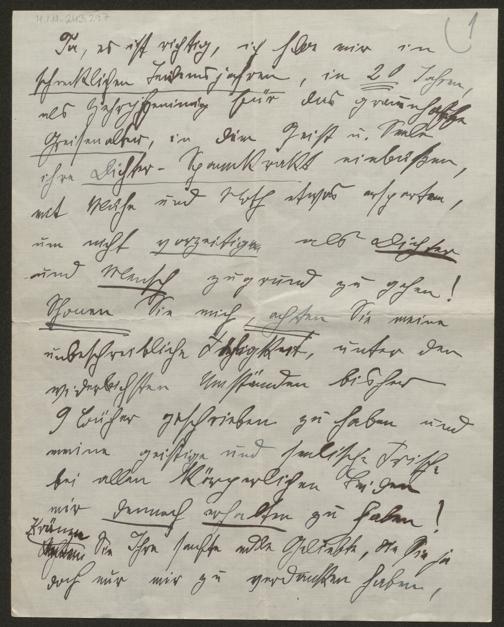 H.I.N.-243217
1
Ja, es ist richtig, ich habe mir in
schrecklichen Leidensjahren, in 20 Jahren,
als für das grauenhafte
Greisenalter, in dem Geist u. Seele
ihre Dichter-Spannkraft einbüßen,
mit Mühe und Noth etwas erspart,
um nicht vorzeitigen als Dichter
und Mensch zugrund zu gehen!
Schonen Sie mich, achten Sie meine
unbeschreibliche Fähigkeit, unter den
widerlichsten Umständen bisher
9 Bücher geschrieben zu haben und
meine geistige und seelische Frische
bei allen körperlichen Leiden
mir dennoch erhalten zu haben!
Kränken
Sie Ihre sanfte edle Geliebte, die Sie ja
doch nur mir zu verdanken haben,